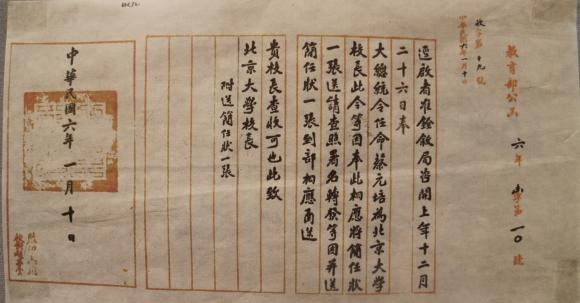 教育部公函 六年 字第一〇號
收字第十九號
中華民國六年一月十日
逕啟者准銓敘局咨開上年十二月
二十六日奉
大總統令任命蔡元培為北京大學
校長此令等因奉此相應將簡任狀
一張送請查照署名轉發等因並送
簡任狀一張到部相應函送
貴校長查收可也此致
北京大學校長
附送簡任狀一張
中華民國六年一月十日